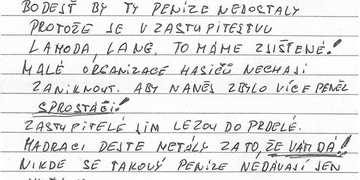 BODEJŤ BY TY PENÍZE NEDOSTALY
PROTOŽE SE V ZASTUPITESTVU
LAHODA, LANG, TO MÁME ZJIŠTĚNÉ!
MALÉ ORGANIZACE HASIČŮ NECHAJÍ
ZANIKNOUT. ABY NANĚS ZBYLO VÍCE PENĚL
SPROSTÁČI!
ZASTUPITELÉ JIM LEZOU DO PRDELÉ.
HADRACI DEJTE METÁLY ZA TO, ŽE VÁM DÁ!
NIKDE SE TAKOVÝ PENÍZE NEDÁVAJÍ JEN